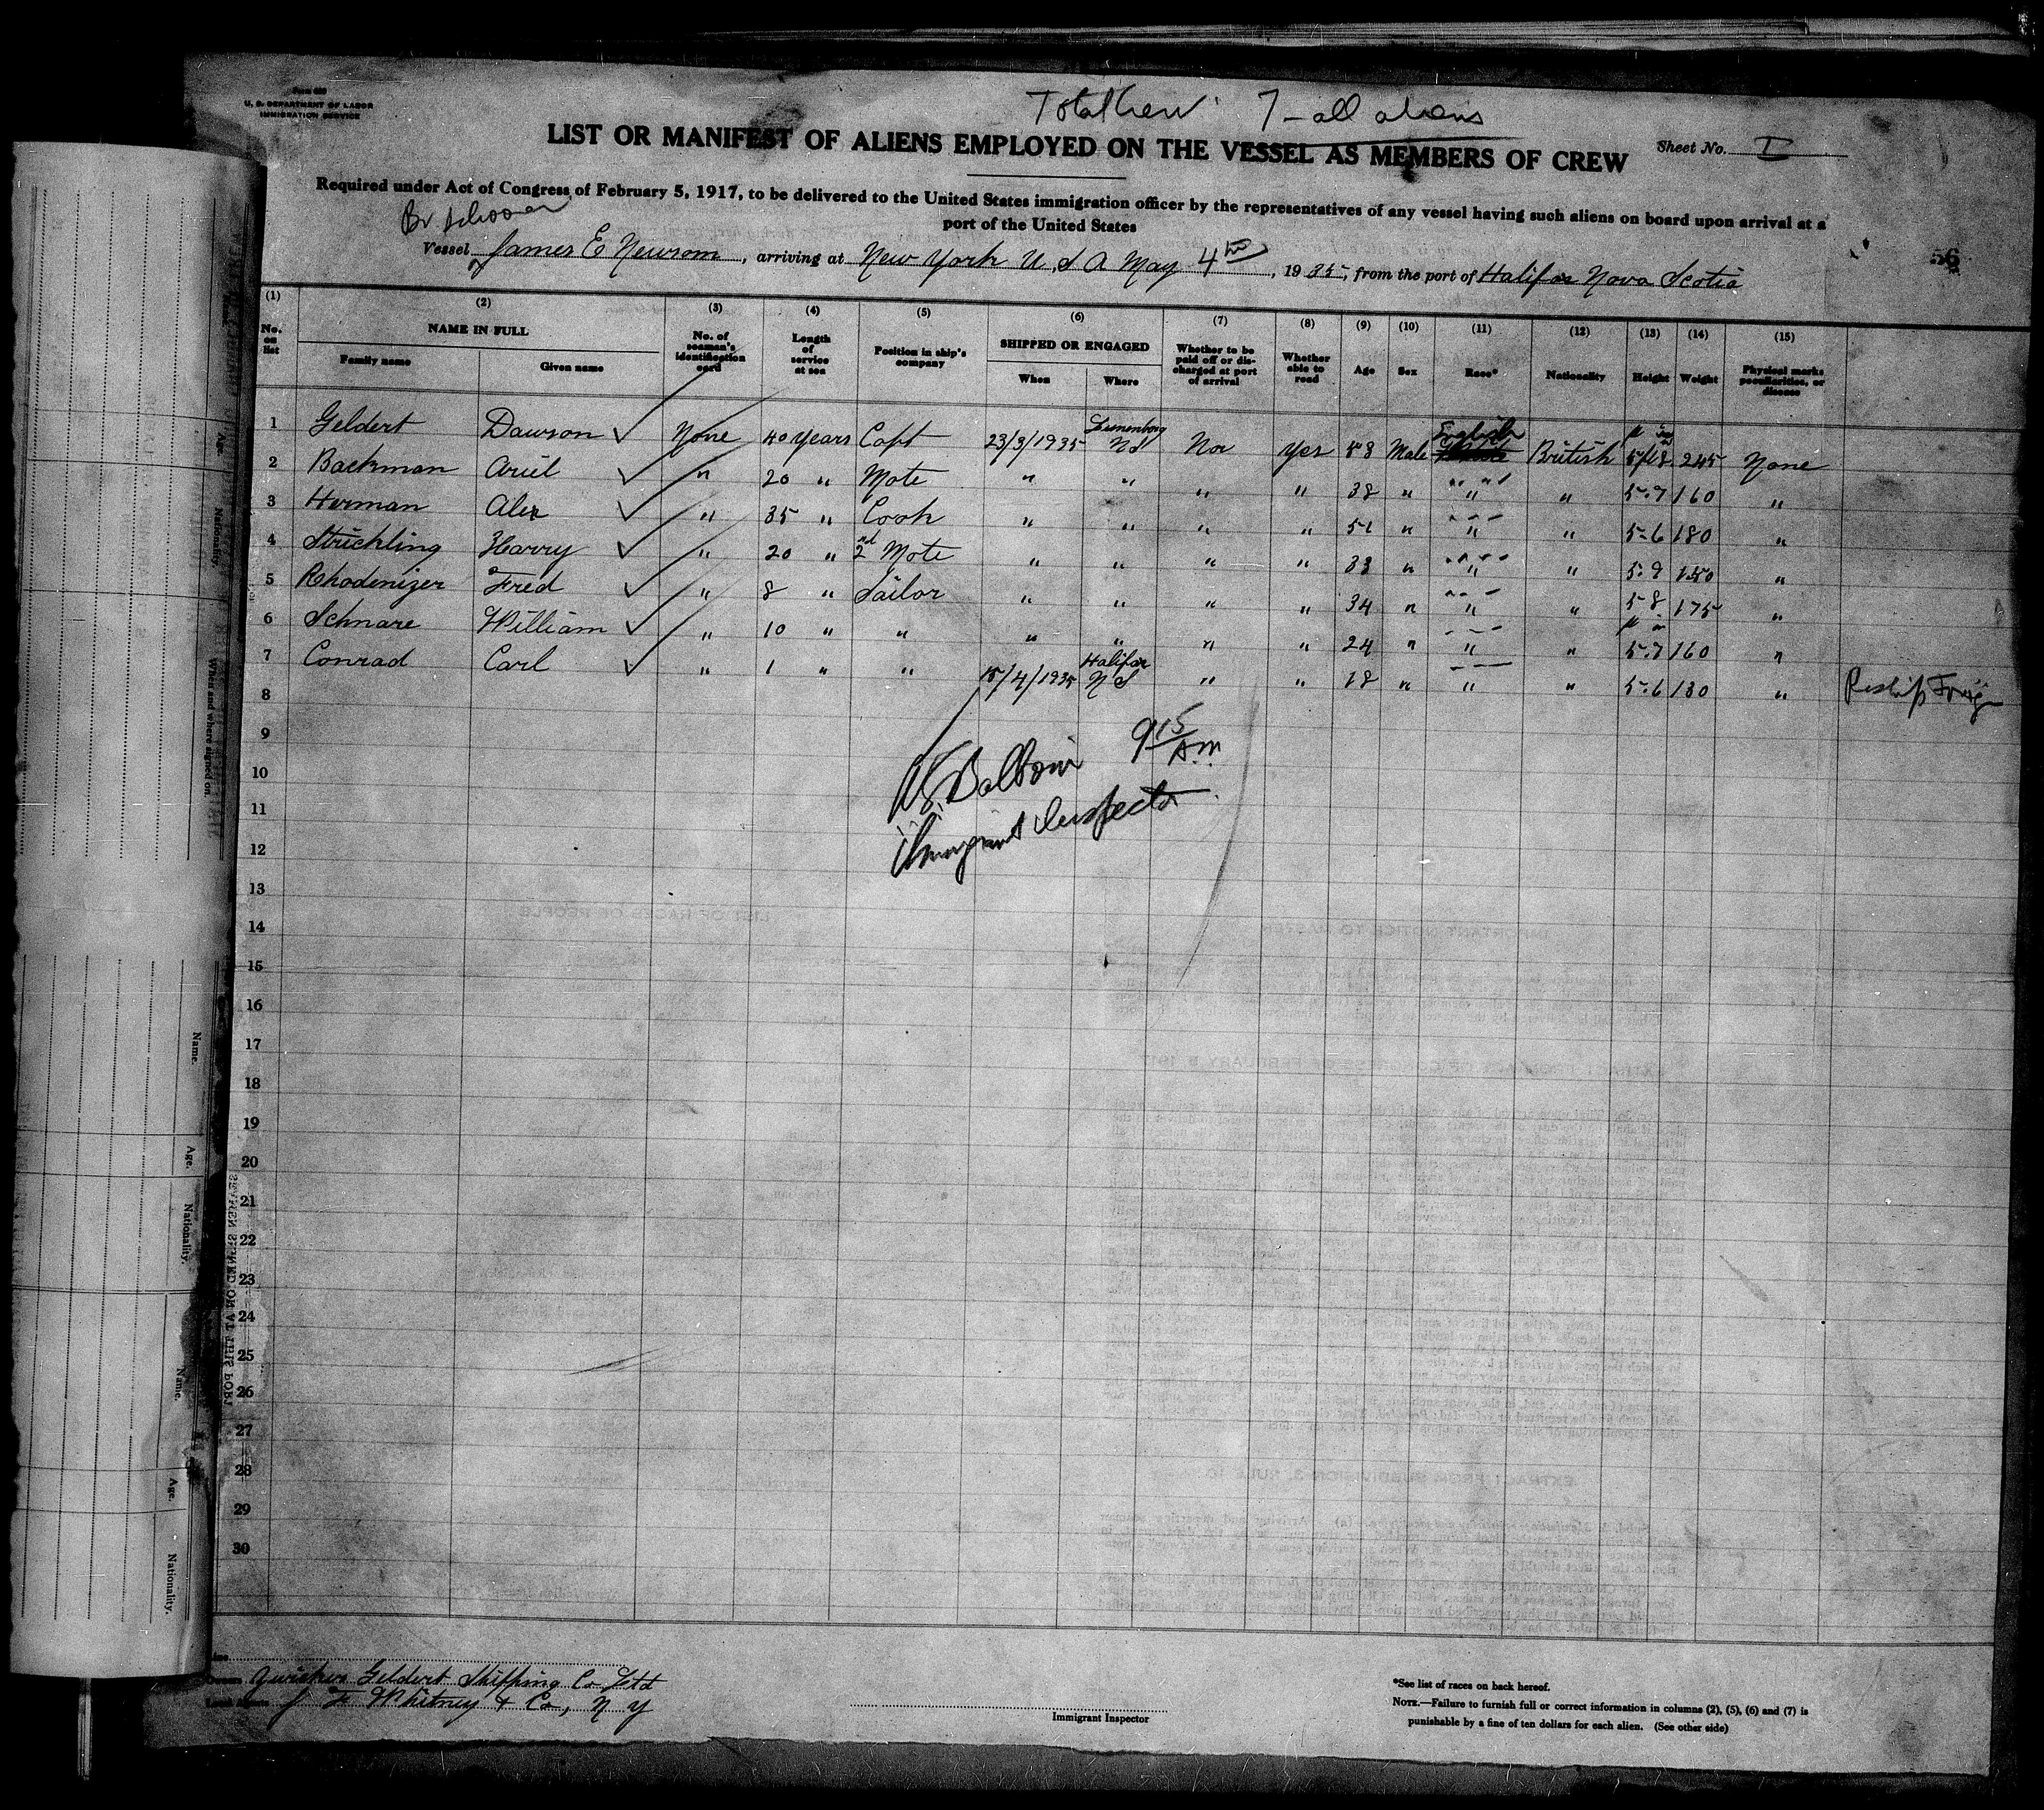 Form 680
U. S. DEPARTMENT OF LABOR
IMMIGRATION SERVICE
Total Crew 7 - all aliens
LIST OR MANIFEST OF ALIENS EMPLOYED ON THE VESSEL AS MEMBERS OF CREW
Sheet No. I
Required under Act of Congress of February 5, 1917, to be delivered to the United States immigration officer by the representatives of any vessel having such aliens on board upon arrival at a
port of the United States
Br schooner
Vessel James E Newsom, arriving at New York U. S A May 4th, 1935, from the port of Halifax Nova Scotia
56
(1) (2) (3) (4) (5) (6) (7) (8) (9) (10) (11) (12) (13) (14) (15)
No. on list NAME IN FULL Family name Given name No. of seaman's identification card Length of service at sea Position in ship's company SHIPPED OR ENGAGED When Where Whether to be paid off or discharged at port of arrival Whether able to read Age Sex Race* Nationality Height Weight Physical marks peculiarities, or disease
1 Geldert Dawson ✓ None 40 years Capt 23/3/1935 Lunenburg NS No Yes 58 Male English British 245 None
2 Backman Ariel ✓ " 20 " Mate " " " " 38 " " " 5.7 160 "
3 Herman Alex ✓ " 35 " Cook " " " " 51 " " " 5.6 180 "
4 Strickling Harry ✓ " 20 " 2nd Mate " " " " 33 " " " 5.9 150 "
5 Rhodenizer Fred ✓ " 8 " Sailor " " " " 34 " " " 5 8 175 "
6 Schnare William ✓ " 10 " " " " " " 24 " " " 5.7 160 "
7 Conrad Carl ✓ " 1 " " 15/4/1935 Halifax NS " " 18 " " " 5.6 130 " Reship Frgn
8
9
10
11
12
13
14
15
16
17
18
19
20
21
22
23
24
25
26
27
28
29
30
9 15 A.M.
Baldwin
Immigrant Inspector
Owners Zwicker Geldert Shipping Co Ltd
Local Agents J F Whitney & Co, N Y
Immigrant Inspector
*See list of races on back hereof.
NOTE.—Failure to furnish full or correct information in columns (2), (5), (6) and (7) is
punishable by a fine of ten dollars for each alien. (See other side)
Age.
Nationality.
When and where signed on.
Name.
Age.
Nationality.
Name.
Age.
Nationality.
SEAMEN SIGNED ON AT THIS PORT